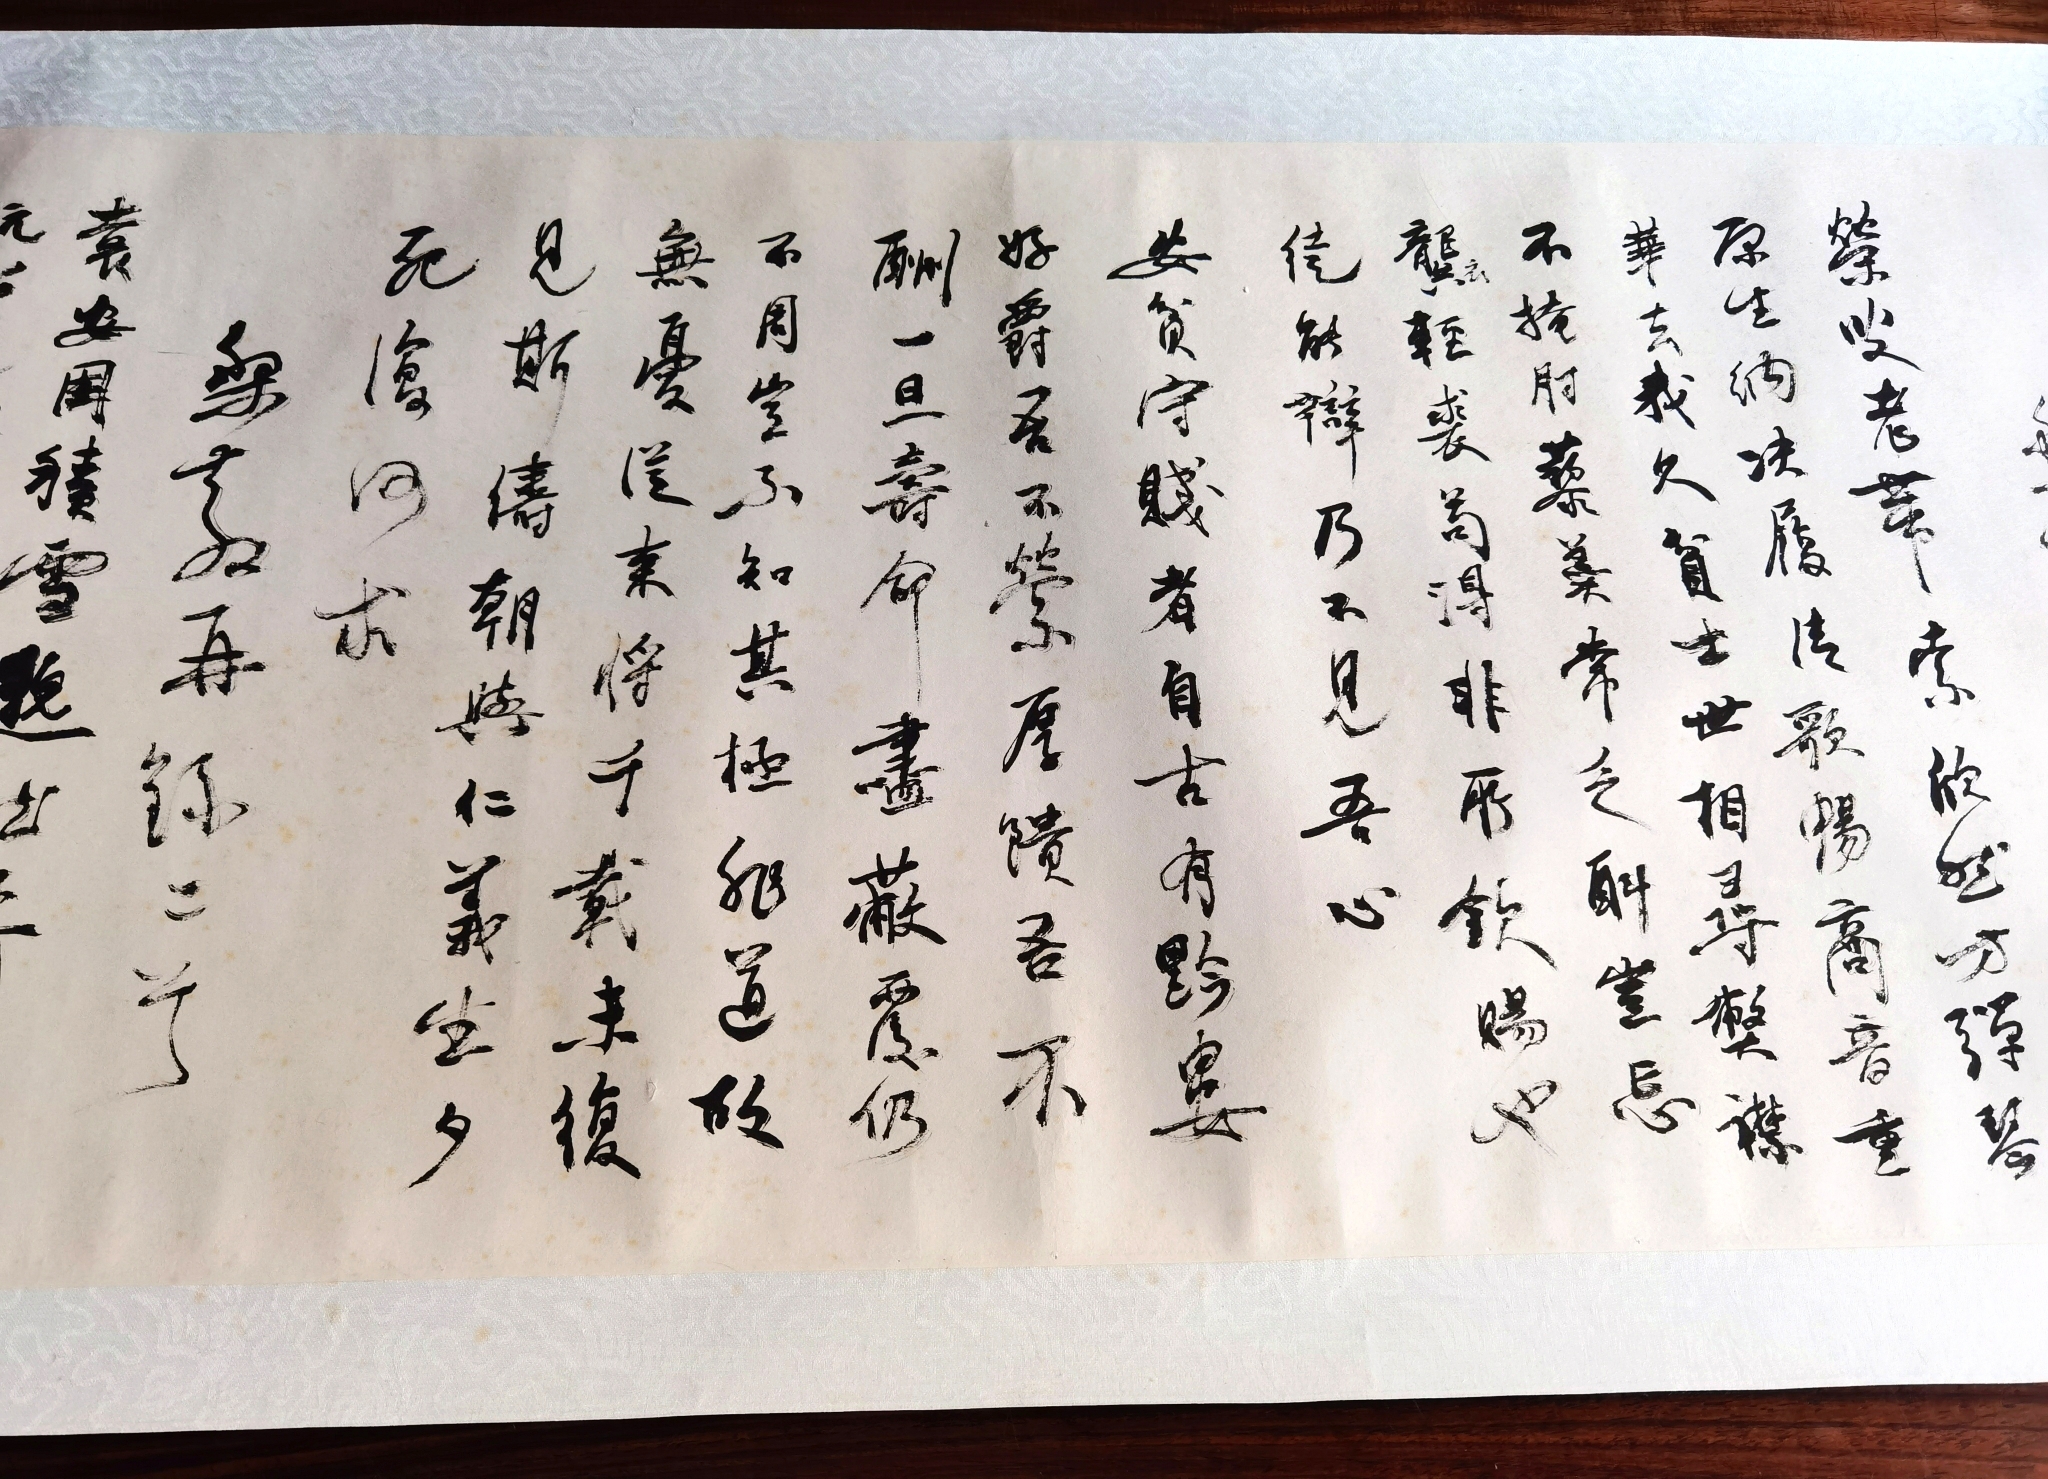 榮叟老帶索欣然方彈琴
原生納决履清歌暢商音重
華去我久貧士世相尋獘襟
不掩肘藜羹常乏斟豈忘
襲輕裘苟得非所欽賜也
徒能辯乃不見吾心
安貧守賤者自古有黔婁
好爵吾不縈厚饋吾不
酬一旦壽命盡蔽覆仍
不周豈不知其極非道故
無憂從来將千載未復
見斯儔朝與仁義生夕
死復何求
再録二首
袁安困積雪邈